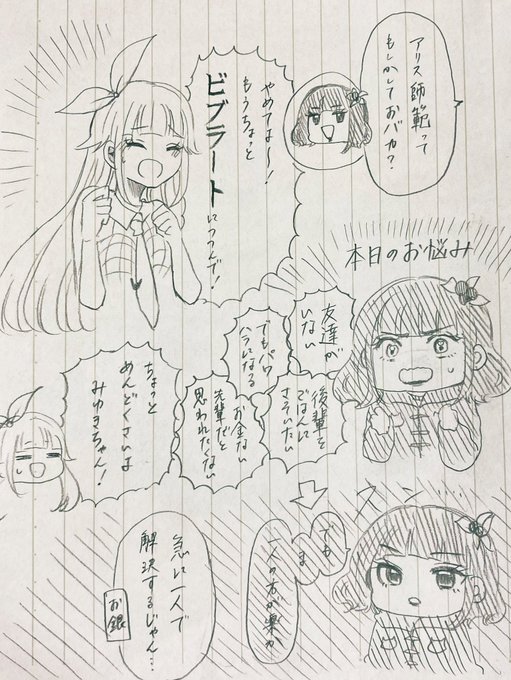 アリス師範って
もしかしておバカ？
やめてよ〜！
もうちょっと
ビブラートにつつんで！
本日のお悩み
友達が
いない
後輩を
ごはんに
さそいたい
でもパワ
ハラになる
お金ない
先輩だと
思われたくない
ちょっと
めんどくさいよ
みゆきちゃん！
スン
でも
ま
一人の方が楽か
急に一人で
解決するじゃん…
お銀